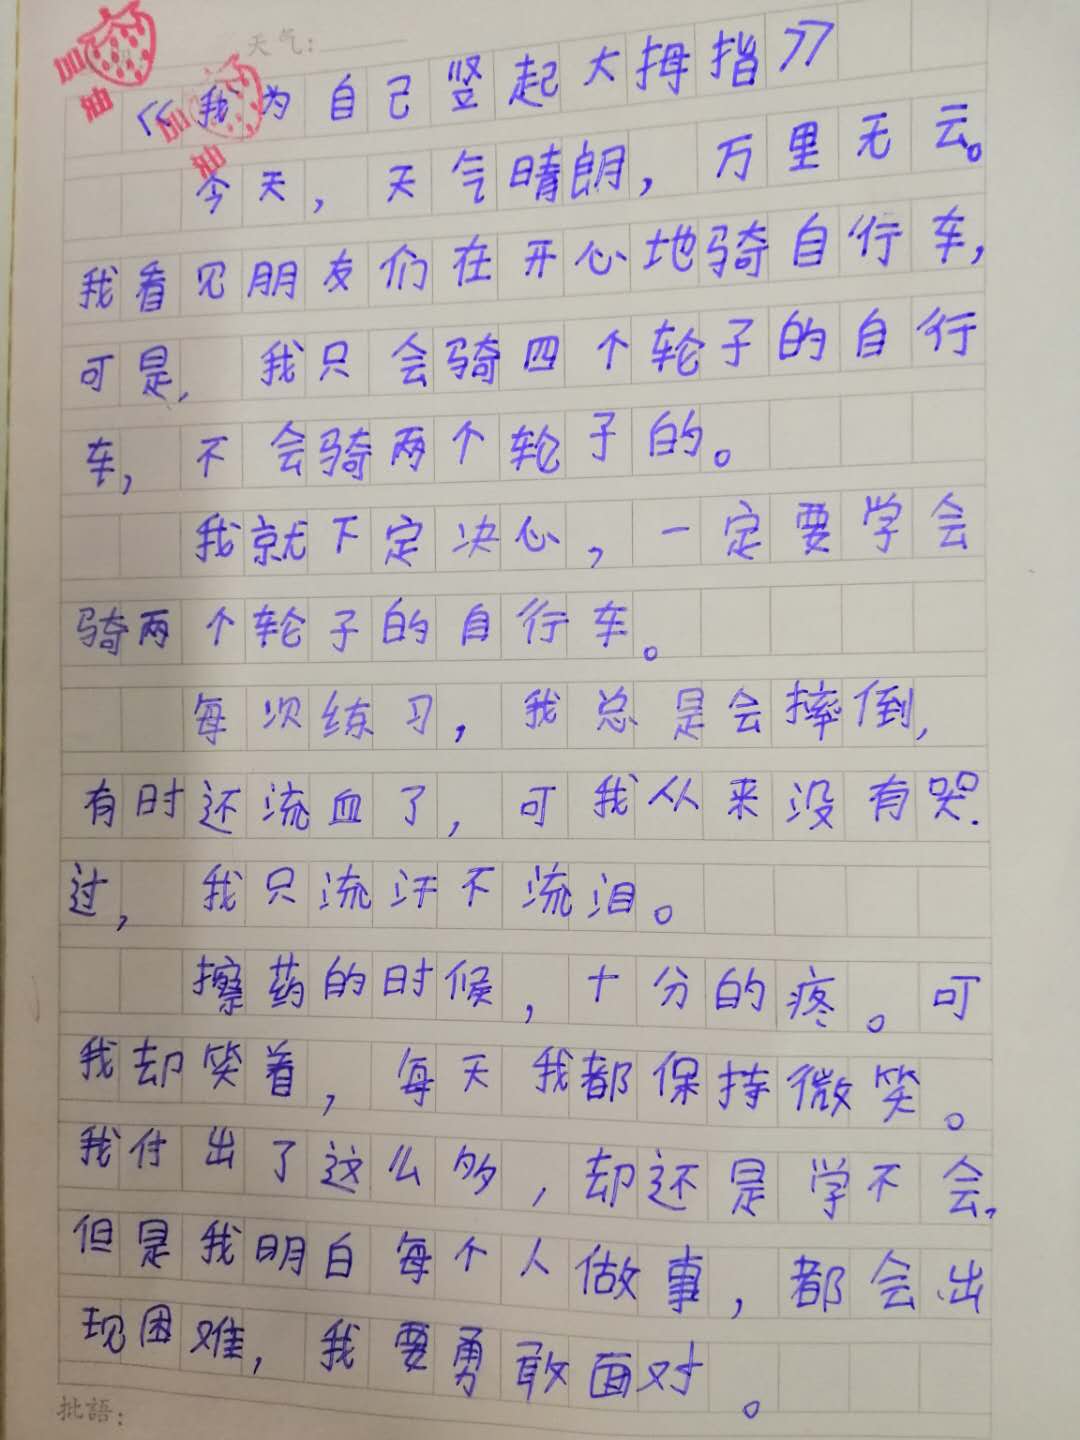 天气:
《我为自己竖起大拇指》
今天,天气晴朗,万里无云。
我看见朋友们在开心地骑自行车,
可是,我只会骑四个轮子的自行
车,不会骑两个轮子的。
我就下定决心,一定要学会
骑两个轮子的自行车。
每次练习,我总是会摔倒,
有时还流血了,可我从来没有哭
过,我只流汗不流泪。
擦药的时候,十分的疼。可
我却笑着,每天我都保持微笑。
我付出了这么多,却还是学不会,
但是我明白每个人做事,都会出
现困难,我要勇敢面对。
批語: